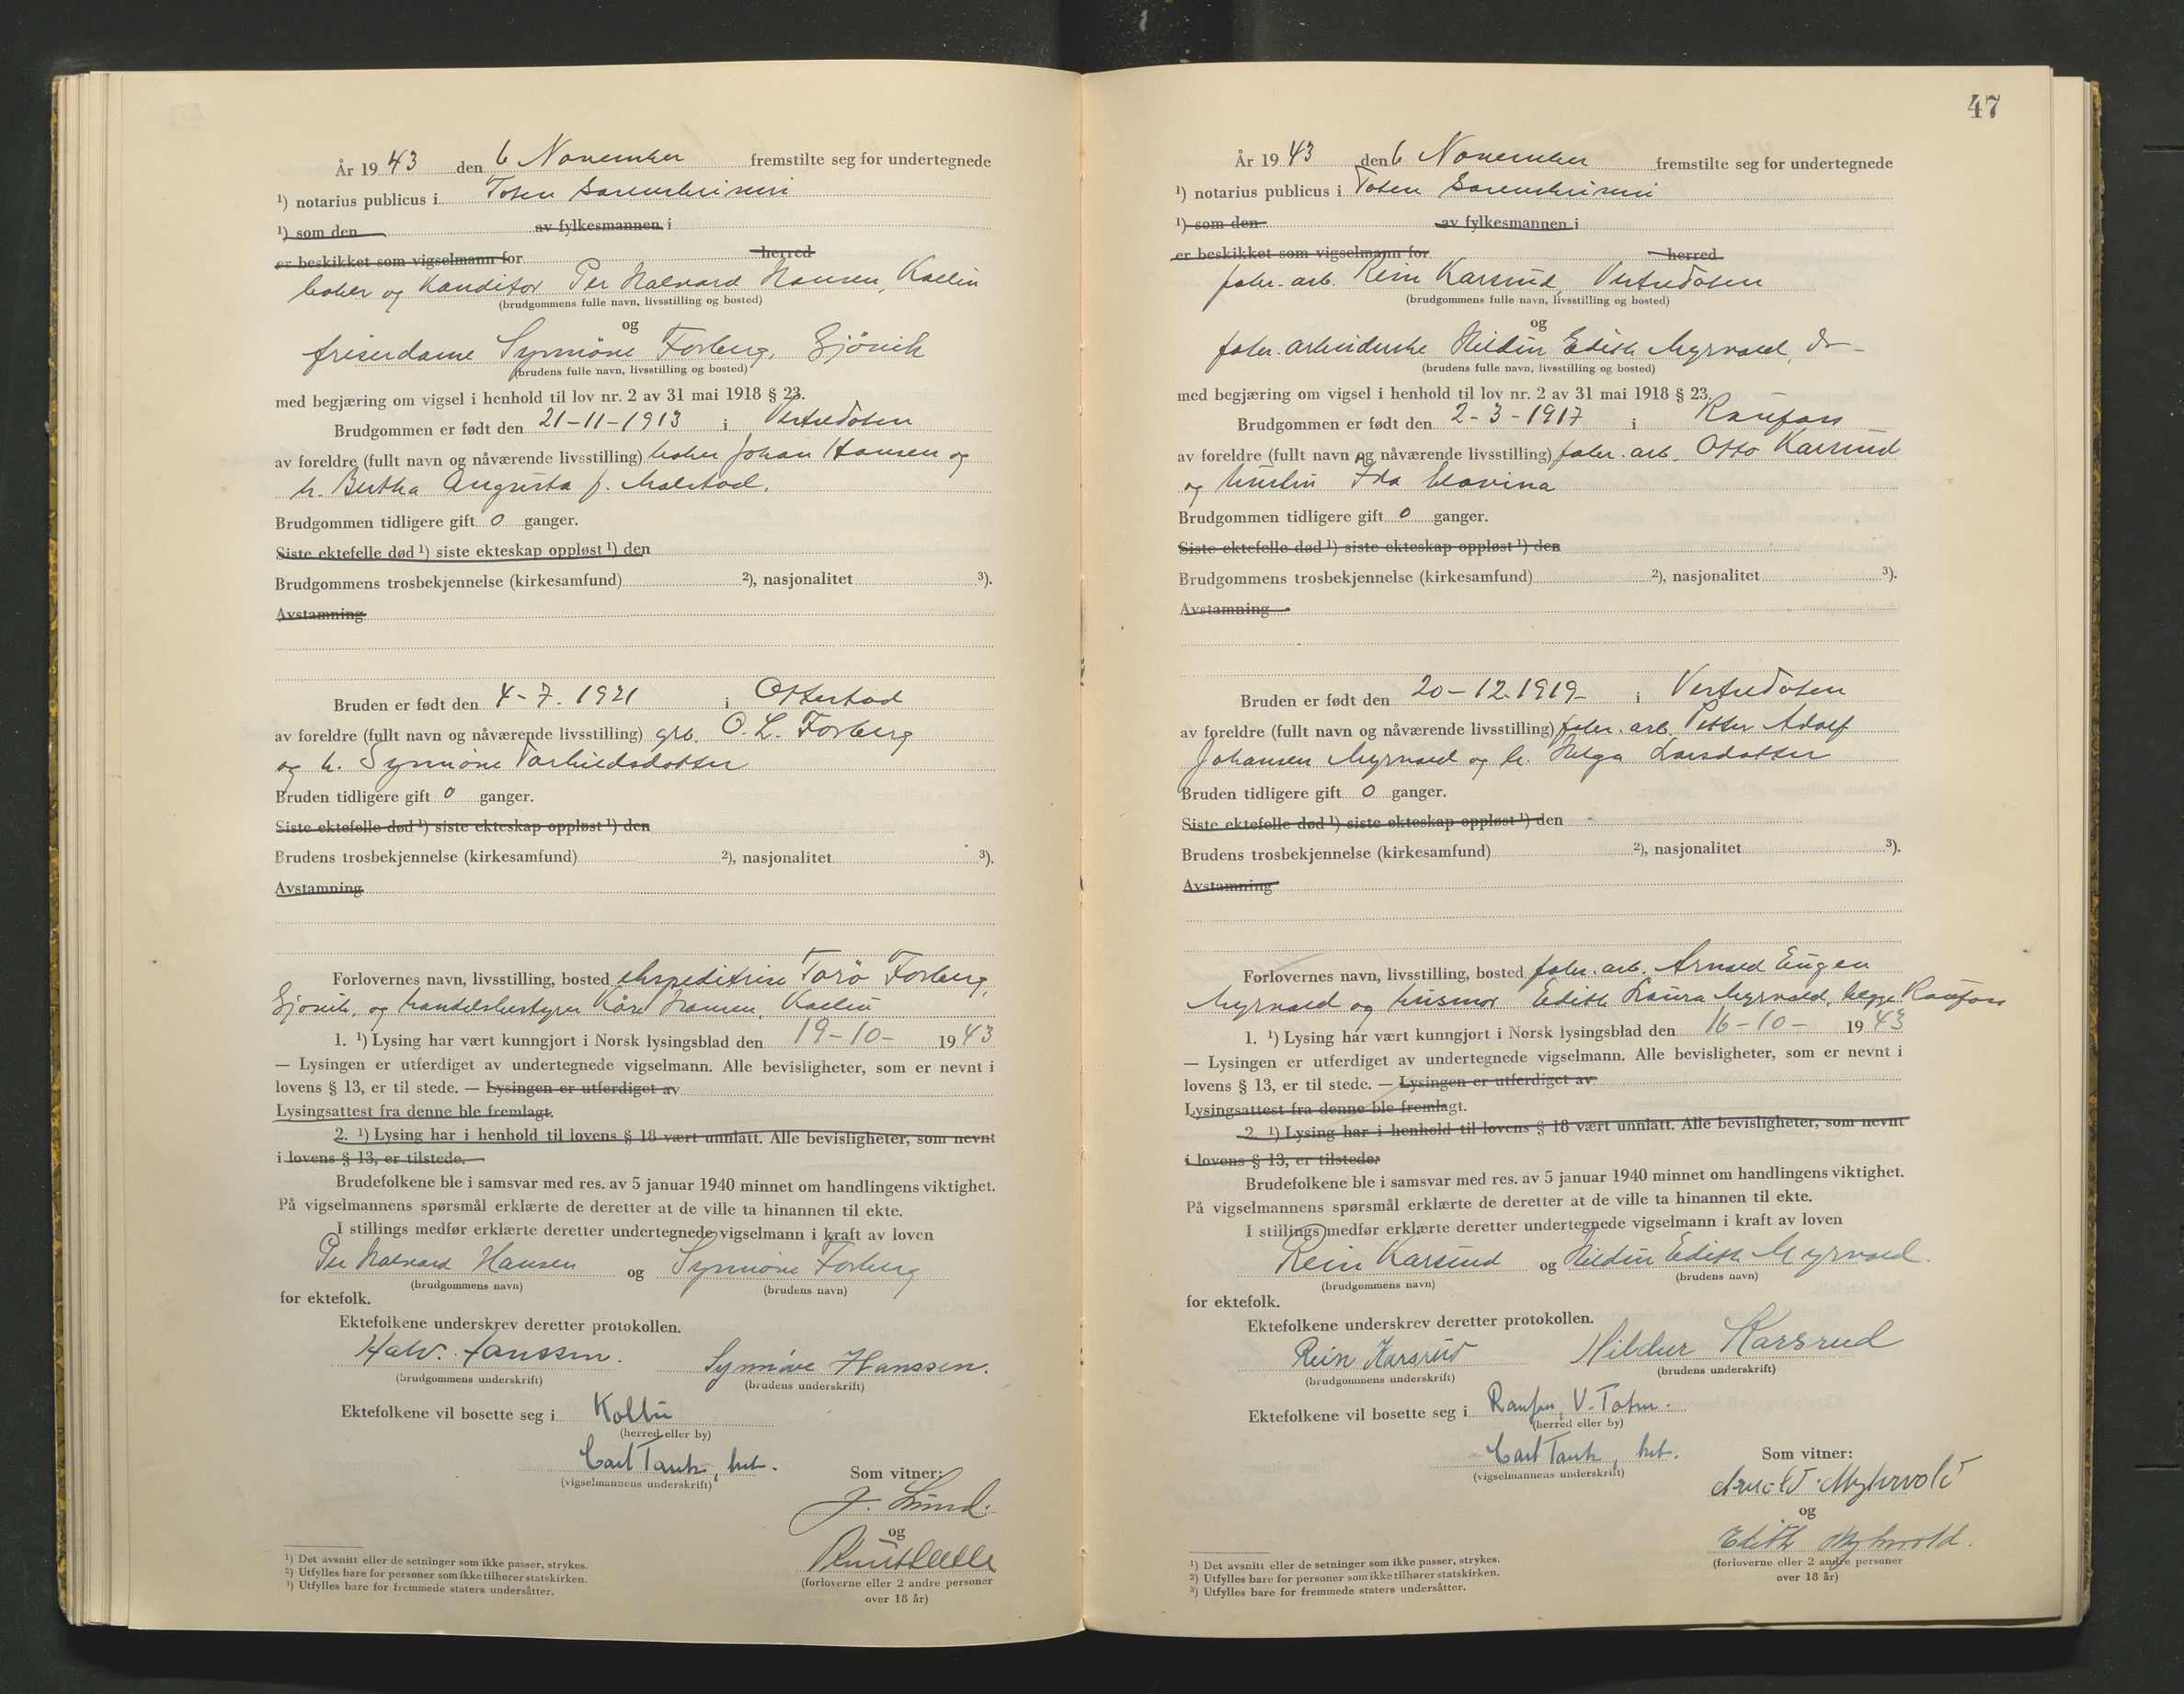 År 19 43 den 6 November fremstilte seg for undertegnede
¹) notarius publicus i Toten Sorenskriveri
¹) som den av fylkesmannen i
er beskikket som vigselmann for herred
baker og Konditor Per Halvard Hansen, Kolbu
(brudgommens fulle navn, livsstilling og bosted)
og
friserdame Synnöve Forberg, Gjövik
(brudens fulle navn, livsstilling og bosted)
med begjæring om vigsel i henhold til lov nr. 2 av 31 mai 1918 § 23.
Brudgommen er født den 21-11-1913 i Vestre Toten
av foreldre (fullt navn og nåværende livsstilling) baker Johan Hansen og
h. Bertha Augusta f.
Brudgommen tidligere gift 0 ganger.
Siste ektefelle død ¹) siste ekteskap oppløst ¹) den
Brudgommens trosbekjennelse (kirkesamfund) ²), nasjonalitet ³).
Avstamning
Bruden er født den 4-7. 1921 i Ottestad
av foreldre (fullt navn og nåværende livsstilling) grb. O. L. Forberg
og h. Synnöve
Bruden tidligere gift 0 ganger.
Siste ektefelle død ¹) siste ekteskap oppløst ¹) den
Brudens trosbekjennelse (kirkesamfund) ²), nasjonalitet ³).
Avstamning
Forlovernes navn, livsstilling, bosted ekspeditrise Forberg,
Gjövik, og handelsbestyrer Kåre Hansen, Kolbu
1. ¹) Lysing har vært kunngjort i Norsk lysingsblad den 19-10- 19 43
— Lysingen er utferdiget av undertegnede vigselmann. Alle bevisligheter, som er nevnt i
lovens § 13, er til stede. — Lysingen er utferdiget av
Lysingsattest fra denne ble fremlagt.
2. ¹) Lysing har i henhold til lovens § 18 vært unnlatt. Alle bevisligheter, som nevnt
i lovens § 13, er tilstede.
Brudefolkene ble i samsvar med res. av 5 januar 1940 minnet om handlingens viktighet.
På vigselmannens spørsmål erklærte de deretter at de ville ta hinannen til ekte.
I stillings medfør erklærte deretter undertegnede vigselmann i kraft av loven
Per Halvard Hansen og Synnöve Forberg
(brudgommens navn) (brudens navn)
for ektefolk.
Ektefolkene underskrev deretter protokollen.
Halv. Hanssen. Synnöve Hanssen.
(brudgommens underskrift) (brudens underskrift)
Ektefolkene vil bosette seg i Kolbu
(herred eller by)
Carl
(vigselmannens underskrift)
Som vitner:
J. Lund.
og
Knut
(forloverne eller 2 andre personer
over 18 år)
¹) Det avsnitt eller de setninger som ikke passer, strykes.
²) Utfylles bare for personer som ikke tilhører statskirken.
³) Utfylles bare for fremmede staters undersåtter.
47
År 19 43 den 6 November fremstilte seg for undertegnede
¹) notarius publicus i Toten Sorenskriveri
¹) som den av fylkesmannen i
er beskikket som vigselmann for herred
fabr. arb. Rein Karsrud, Vestre Toten
(brudgommens fulle navn, livsstilling og bosted)
og
fabr. arbeiderske Hildur Edith Myrvold, do -
(brudens fulle navn, livsstilling og bosted)
med begjæring om vigsel i henhold til lov nr. 2 av 31 mai 1918 § 23.
Brudgommen er født den 2-3-1917 i Raufoss
av foreldre (fullt navn og nåværende livsstilling) fabr. arb. Otto Karsrud
og hustru Ida
Brudgommen tidligere gift 0 ganger.
Siste ektefelle død ¹) siste ekteskap oppløst ¹) den
Brudgommens trosbekjennelse (kirkesamfund) ²), nasjonalitet ³).
Avstamning
Bruden er født den 20-12. 1919- i Vestre Toten
av foreldre (fullt navn og nåværende livsstilling) fabr. arb. Petter Adolf
Johansen Myrvold og h. Helga Larsdatter
Bruden tidligere gift 0 ganger.
Siste ektefelle død ¹) siste ekteskap oppløst ¹) den
Brudens trosbekjennelse (kirkesamfund) ²), nasjonalitet ³).
Avstamning
Forlovernes navn, livsstilling, bosted fabr. arb. Arnold Eugen
Myrvold og husmor Edith Laura Myrvold, begge Raufoss
1. ¹) Lysing har vært kunngjort i Norsk lysingsblad den 16-10- 19 43
— Lysingen er utferdiget av undertegnede vigselmann. Alle bevisligheter, som er nevnt i
lovens § 13, er til stede. — Lysingen er utferdiget av
Lysingsattest fra denne ble fremlagt.
2. ¹) Lysing har i henhold til lovens § 18 vært unnlatt. Alle bevisligheter, som nevnt
i lovens § 13, er tilstede.
Brudefolkene ble i samsvar med res. av 5 januar 1940 minnet om handlingens viktighet.
På vigselmannens spørsmål erklærte de deretter at de ville ta hinannen til ekte.
I stillings medfør erklærte deretter undertegnede vigselmann i kraft av loven
Rein Karsrud og Hildur Edith Myrvold.
(brudgommens navn) (brudens navn)
for ektefolk.
Ektefolkene underskrev deretter protokollen.
Rein Karsrud Hildur Karsrud
(brudgommens underskrift) (brudens underskrift)
Ektefolkene vil bosette seg i Raufoss, V. Toten.
(herred eller by)
Carl
(vigselmannens underskrift)
Som vitner:
Arnold Myhrvold
og
Edith Myhrvold.
(forloverne eller 2 andre personer
over 18 år)
¹) Det avsnitt eller de setninger som ikke passer, strykes.
²) Utfylles bare for personer som ikke tilhører statskirken.
³) Utfylles bare for fremmede staters undersåtter.